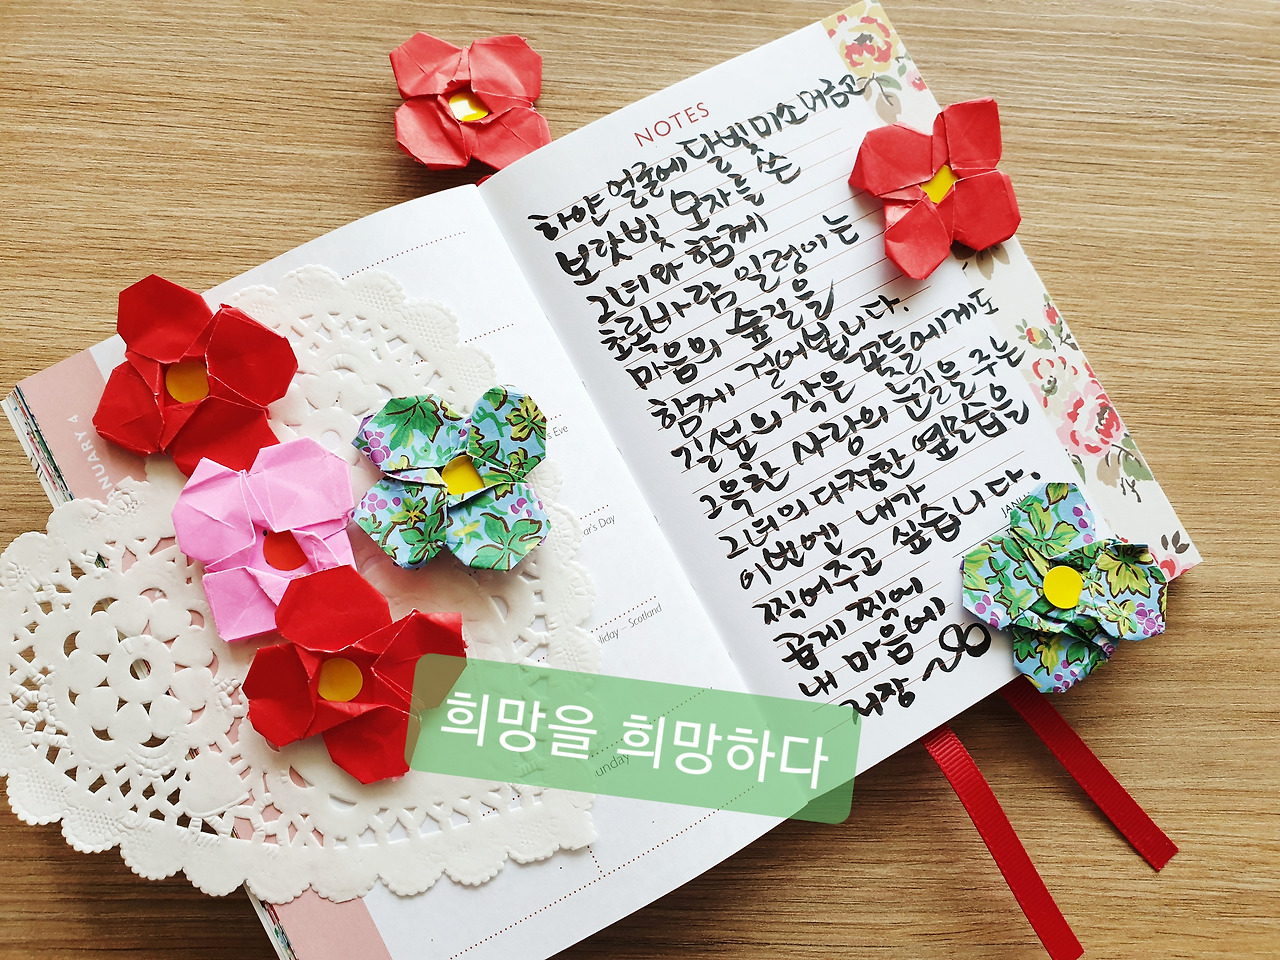 NOTES
하얀 얼굴에 달빛 미소 머금고
보랏빛 모자를 쓴
그녀와 함께
초록바람 일렁이는
마음의 숲길을
함께 걸어봅니다.
길섶의 작은 꽃들에게도
그윽한 사랑의 눈길을 주는
그녀의 다정한 옆모습을
이번엔 내가
찍어주고 싶습니다.
곱게 찍어
내 마음에
저장
JANUARY 4
s Eve
ar's Day
liday – Scotland
unday
희망을 희망하다